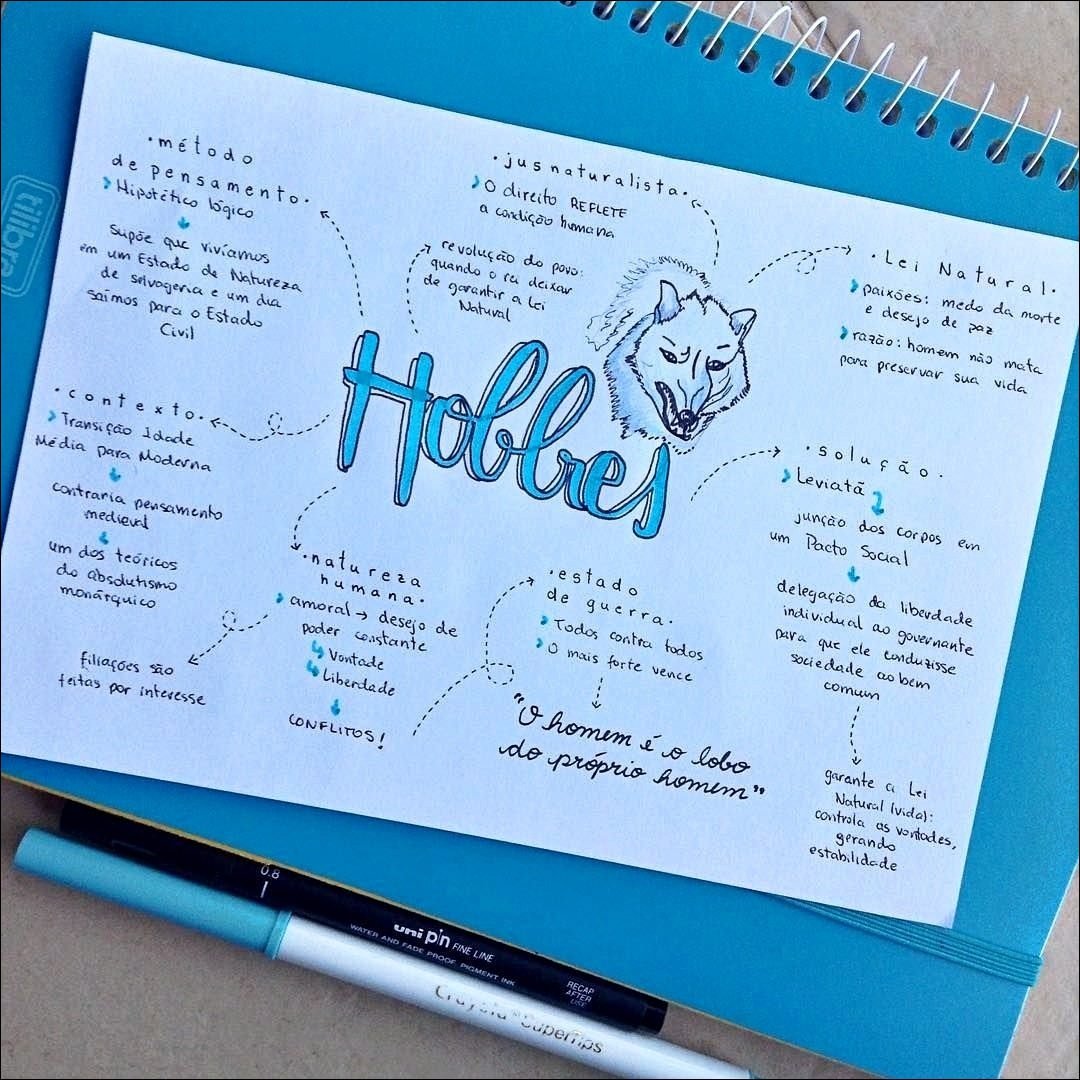 ·método
de pensamento·
Hipotético lógico
Supõe que vivíamos
em um Estado de Natureza
de selvageria e um dia
saímos para o Estado
Civil
·jusnaturalista·
O direito REFLETE
a condição humana
revolução do povo:
quando o rei deixar
de garantir a Lei
Natural
·Lei Natural·
paixões: medo da morte
e desejo de paz
razão: homem não mata
para preservar sua vida
Hobbes
·contexto·
Transição Idade
Média para Moderna
contraria pensamento
medieval
um dos teóricos
do absolutismo
monárquico
·natureza
humana·
amoral → desejo de
poder constante
Vontade
Liberdade
CONFLITOS!
filiações são
feitas por interesse
·estado
de guerra·
Todos contra todos
O mais forte vence
"O homem é o lobo
do próprio homem"
·solução·
Leviatã
junção dos corpos em
um Pacto Social
delegação da liberdade
individual ao governante
para que ele conduzisse
sociedade ao bem
comum
garante a Lei
Natural (vida):
controla as vontades,
gerando
estabilidade
tilibra
0.8
uni pin FINE LINE
WATER AND FADE PROOF, PIGMENT INK
RECAP
AFTER
USE
Crayola Supertips